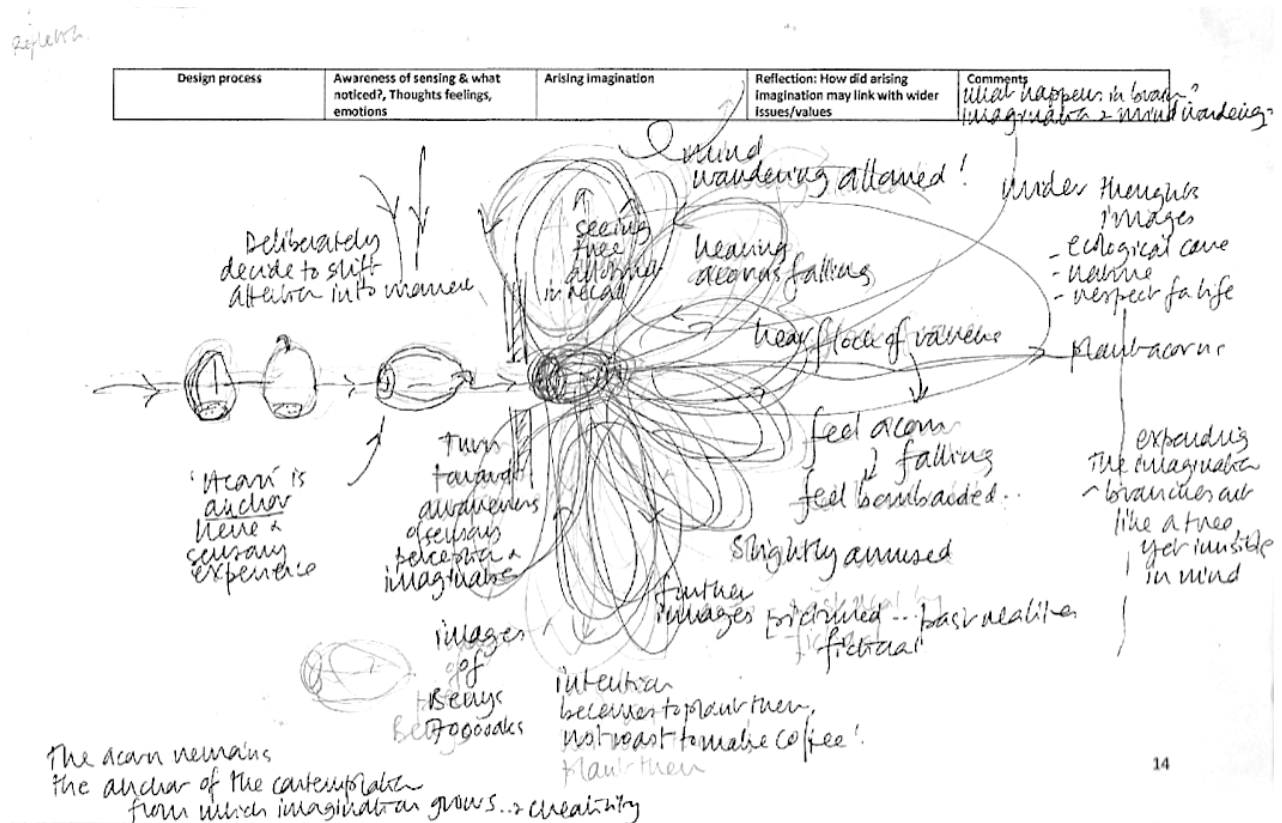 Reflection.
Design process
Awareness of sensing & what
noticed?, Thoughts feelings,
emotions
Arising imagination
Reflection: How did arising
imagination may link with wider
issues/values
Comments
what happens in brain?
imagination & mind wandering?
mind
wandering allowed!
Deliberately
decide to shift
attention into moment
seeing
tree
in recall
hearing
acorns falling
wider thoughts
images
- ecological care
- nature
- respect for life
hear flock of
plant acorns
feel acorn
falling
feel bombarded..
slightly amused
'Acorn' is
anchor
here &
sensory
experience
Turn
towards
awareness
of sensory
perception &
imagination
expanding
The imagination
branches out
like a tree
yet invisible
in mind
further
images pictured... past realities
fictional
images
of
Beuys
7000 oaks
intention
becomes to plant them,
not roast to make coffee!
plant them
The acorn remains
the anchor of the contemplation
from which imagination grows..& creativity
14